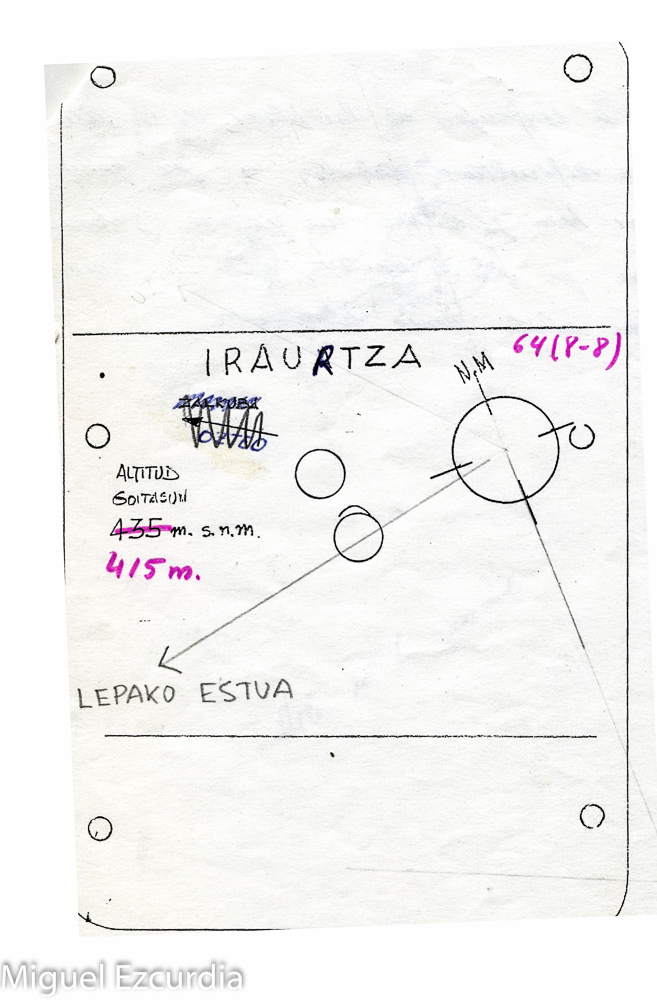 IRAURTZA
64(8-8)
N.M
ALTITUD
GOITASUN
435 m. s.n.m.
415 m.
LEPAKO ESTUA
Miguel Ezcurdia